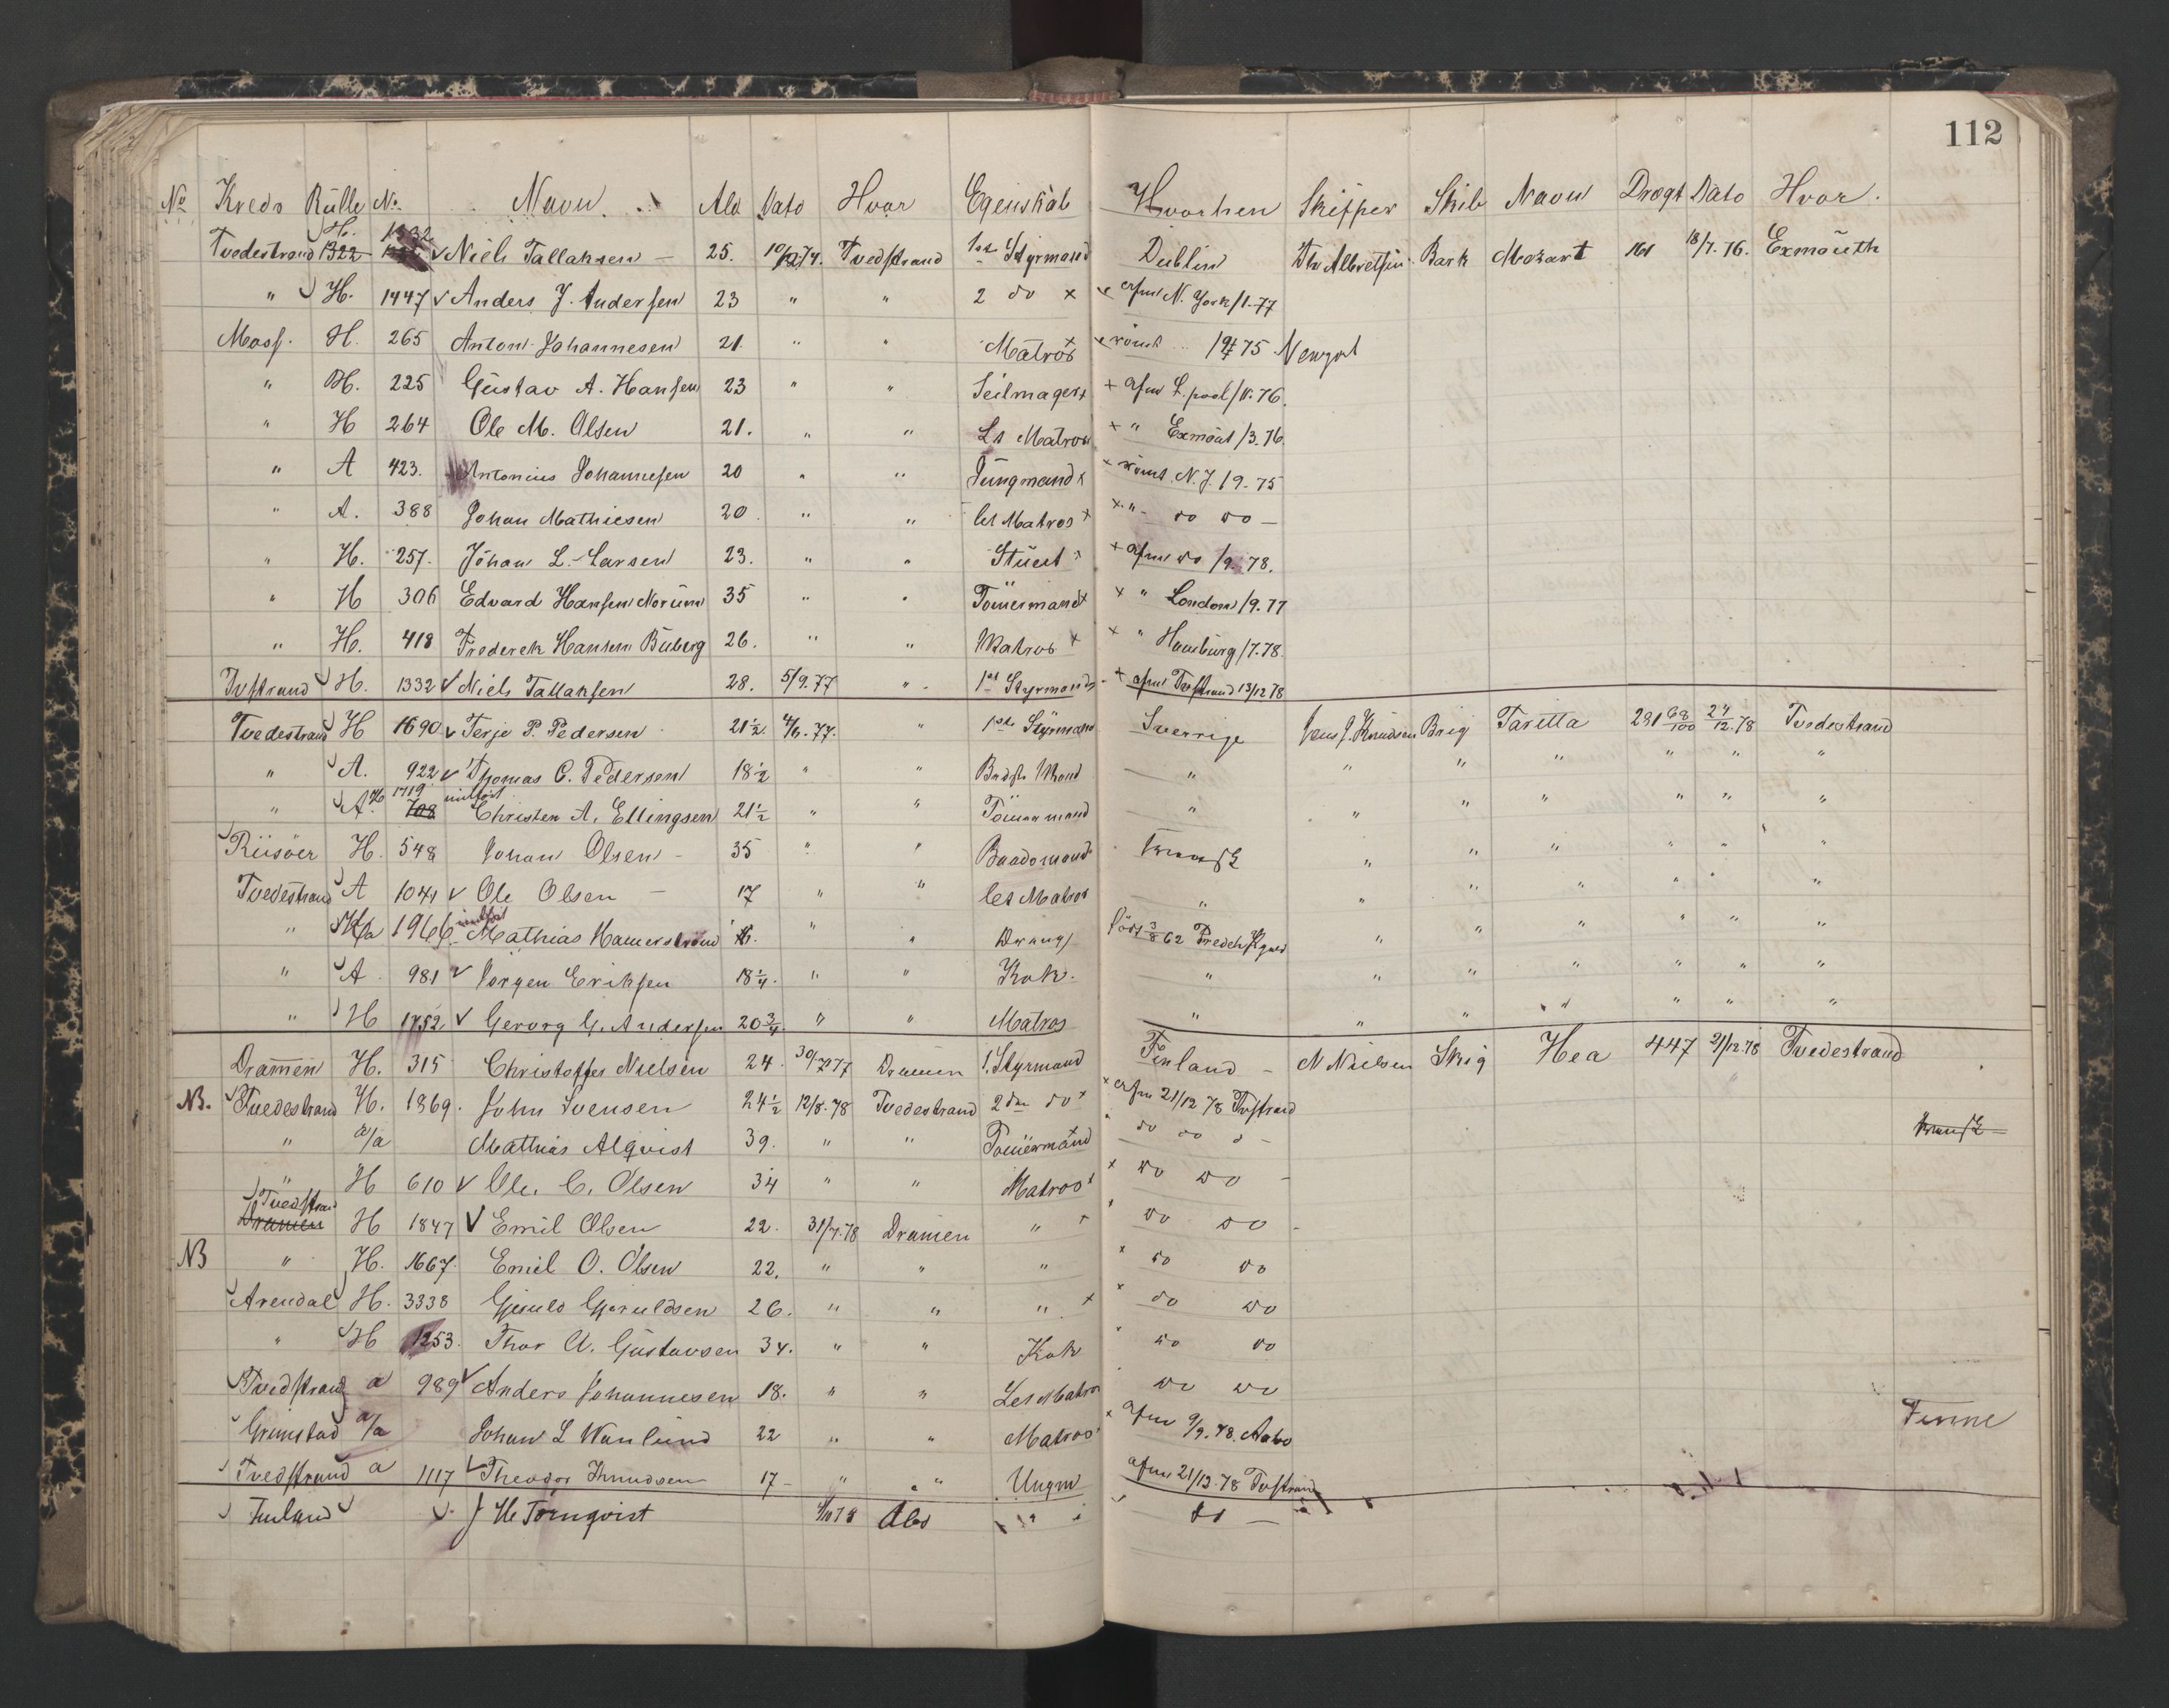 112
No Kreds Rulle No. Navn Ald Dato Hvor Egenskab Hvorhen Skipper Skib Navn Drægt Dato Hvor.
Tvedestrand H. 1322 1332 Niels Tallaksen - 25. 74. Tvedstrand 1ste Styrmand Dublin Albretsen Bark Mozart 161 18/7. 76. Exmouth
" H. 1447 Anders J. Andersen 23 " " 2 do x afm N. York /1-77
Moss. H. 265 Anton Johannesen 21. " " Matros x römt 75 Newport
" H. 225 Gustav A. Hansen 23 " " Seilmager x + afm L.pool / 76.
" H 264 Ole M. Olsen 21. " " Lt Matros + " Exmout /3. 76.
" A 423. Antonius Johannesen 20 " " Jungmand x + römt N.J. / 9-75
" A. 388 Johan Mathiesen 20. " " let Matros x x " - do do -
" H. 257. Johan L. Larsen 23. " " Stuert x + afm do /9. 78.
" H 306 Edvard Hansen Norum 35 " " Tömermand x x " London /9. 77
" H. 418 Frederek Hansen Buberg 26. " " Matros x x " Hamburg /7. 78.
Tvstrand H. 1332 Niels Tallaksen 28. 5/9. 77 " 1st Styrmand - + afm Tvstrand 13/12 78
Tvedestrand H 1690 Terje P. Pedersen 21½ 4/6. 77. " 1ste Styrmand Sverrige Jens J. Knudsen Brig Taritta 281 68/100 24/12. 78 Tvedestrand
" A. 922 Thomas C. Pedersen 18½ " " " " " " " " "
" A. H 1719 708 indført Christen A. Ellingsen 21½ " " Tömermand " " " " " " "
Riisöer H. 548 Johan Olsen - 35 " " Baadsmand " " " " " "
Tvedestrand A 1041 Ole Olsen - 17 " " let Matros " " " " " " "
" 1966 indført Mathias Hamerström " " Dreng född 3/8 62 " " " " " "
" A 981 Jörgen Eriksen 18¼. " " Kok. " " " " " " "
" H 1752 Gerorg G. Andersen 20¾. " " Matros " " " " " " "
Dramen H. 315 Christoffer Nielsen 24. 30/7 77 Dramen 1. Styrmand Finland - N Nielsen Skig Hea 447 21/12 78 Tvedestrand
NB. Tvedestrand H. 1869. John Svensen 24½ 12/8. 78 Tvedestrand 2den do x x afm 21/12 78 Tvstrand
" a/a Mathias Alqvist 39. " " Tömermand " do do -
" H 610 Ole. C. Olsen 34 " " Matros x x do do -
Tvedstrand Dramen H 1847 Emil Olsen 22. 31/7. 78 Dramen " x do do -
NB " H. 1667. Emil O. Olsen 22. " " " x do do
Arendal H. 3338 Gjeruld Gjeruldsen 26. " " " x do do
" H 1253. Thor A. Gustavsen 34. " " Kok do do
Tvedstrand a 989 Anders Johannesen 18. " " Let Matros do do
Grimstad a/a Johan L Wanlund 22 " " Matros x afm 9/9. 78. Aabo Finne
Tvedstrand a 1117 Theodor Knudsen 17 - " " Ungm afm 21/12 78 Tvstrand
Finland Tornqvist 78 Abo " " do -